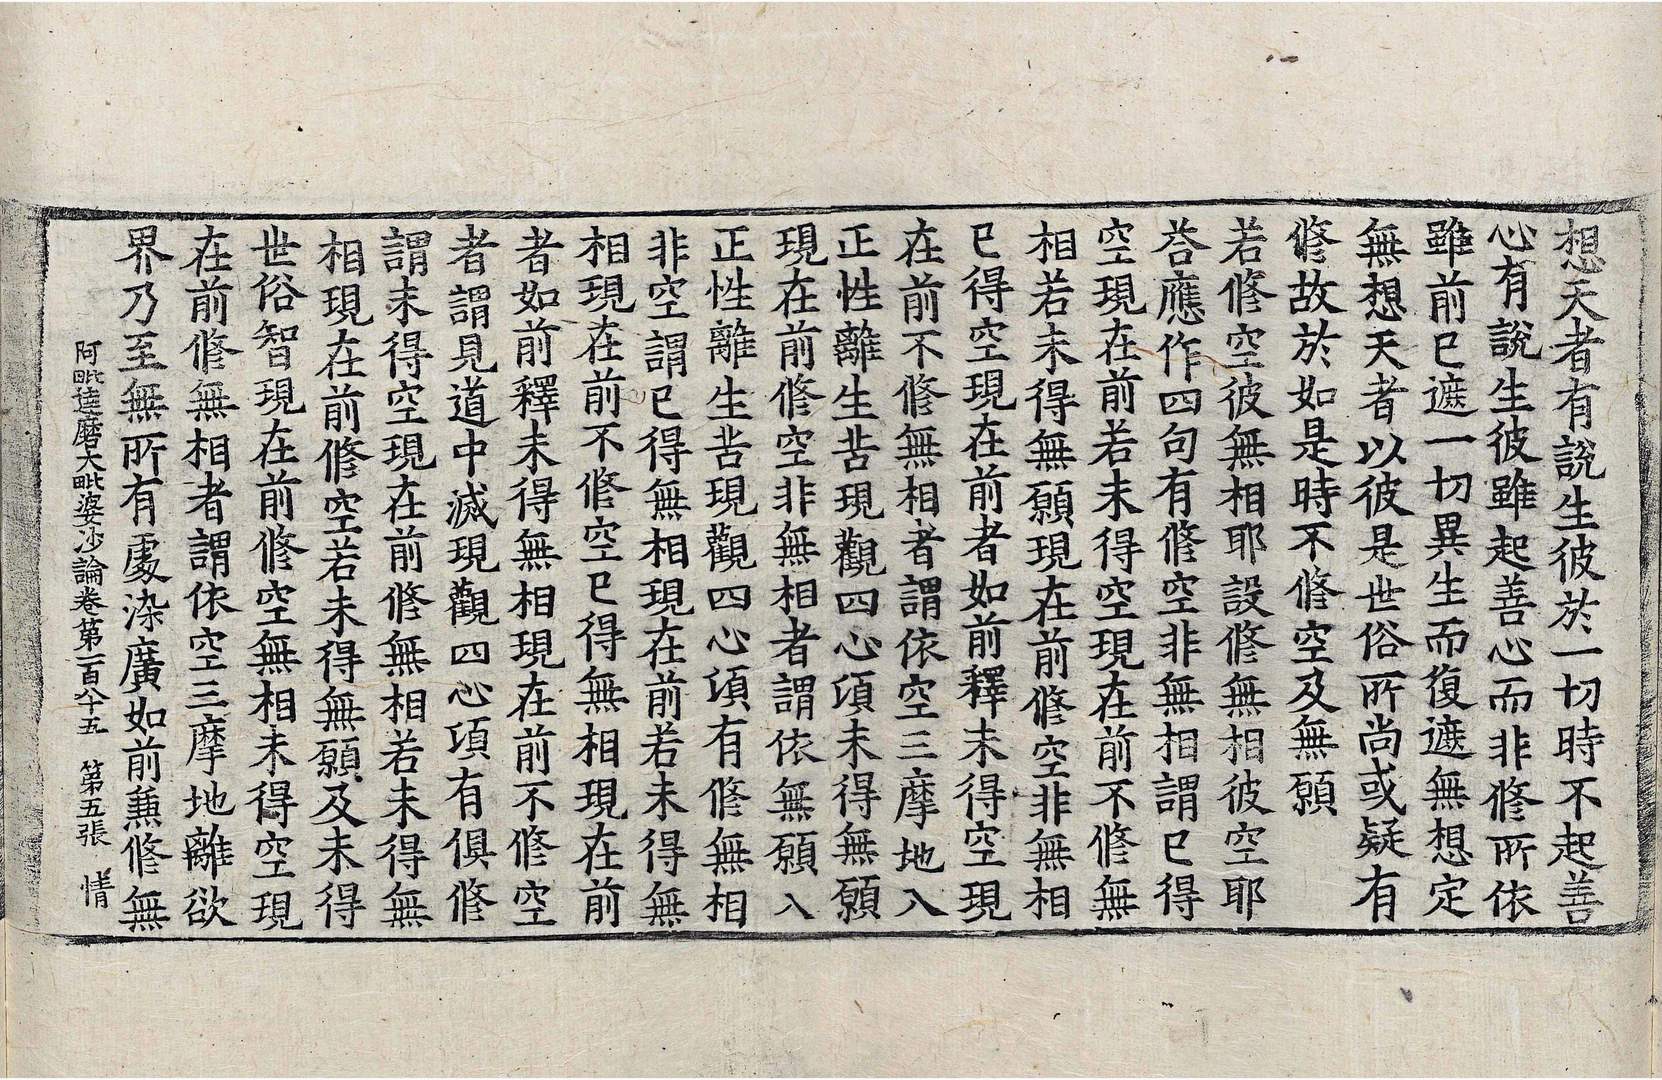 想天者有說生彼於一切時不起善
心有說生彼雖起善心而非修所依
雖前已遮一切異生而復遮無想定
無想天者以彼是世俗所尚或疑有
修故於如是時不修空及無願
若修空彼無相耶設修無相彼空耶
荅應作四句有修空非無相謂已得
空現在前若未得空現在前不修無
相若未得無願現在前修空非無相
已得空現在前者如前釋未得空現
在前不修無相者謂依空三摩地入
正性離生苦現觀四心頃未得無願
現在前修空非無相者謂依無願入
正性離生苦現觀四心頃有修無相
非空謂已得無相現在前若未得無
相現在前不修空已得無相現在前
者如前釋未得無相現在前不修空
者謂見道中滅現觀四心頃有俱修
謂未得空現在前修無相若未得無
相現在前修空若未得無願及未得
世俗智現在前修空無相未得空現
在前修無相者謂依空三摩地離欲
界乃至無所有處染廣如前兼修無
阿毗達磨大毗婆沙論卷第一百八十五 第五張 情